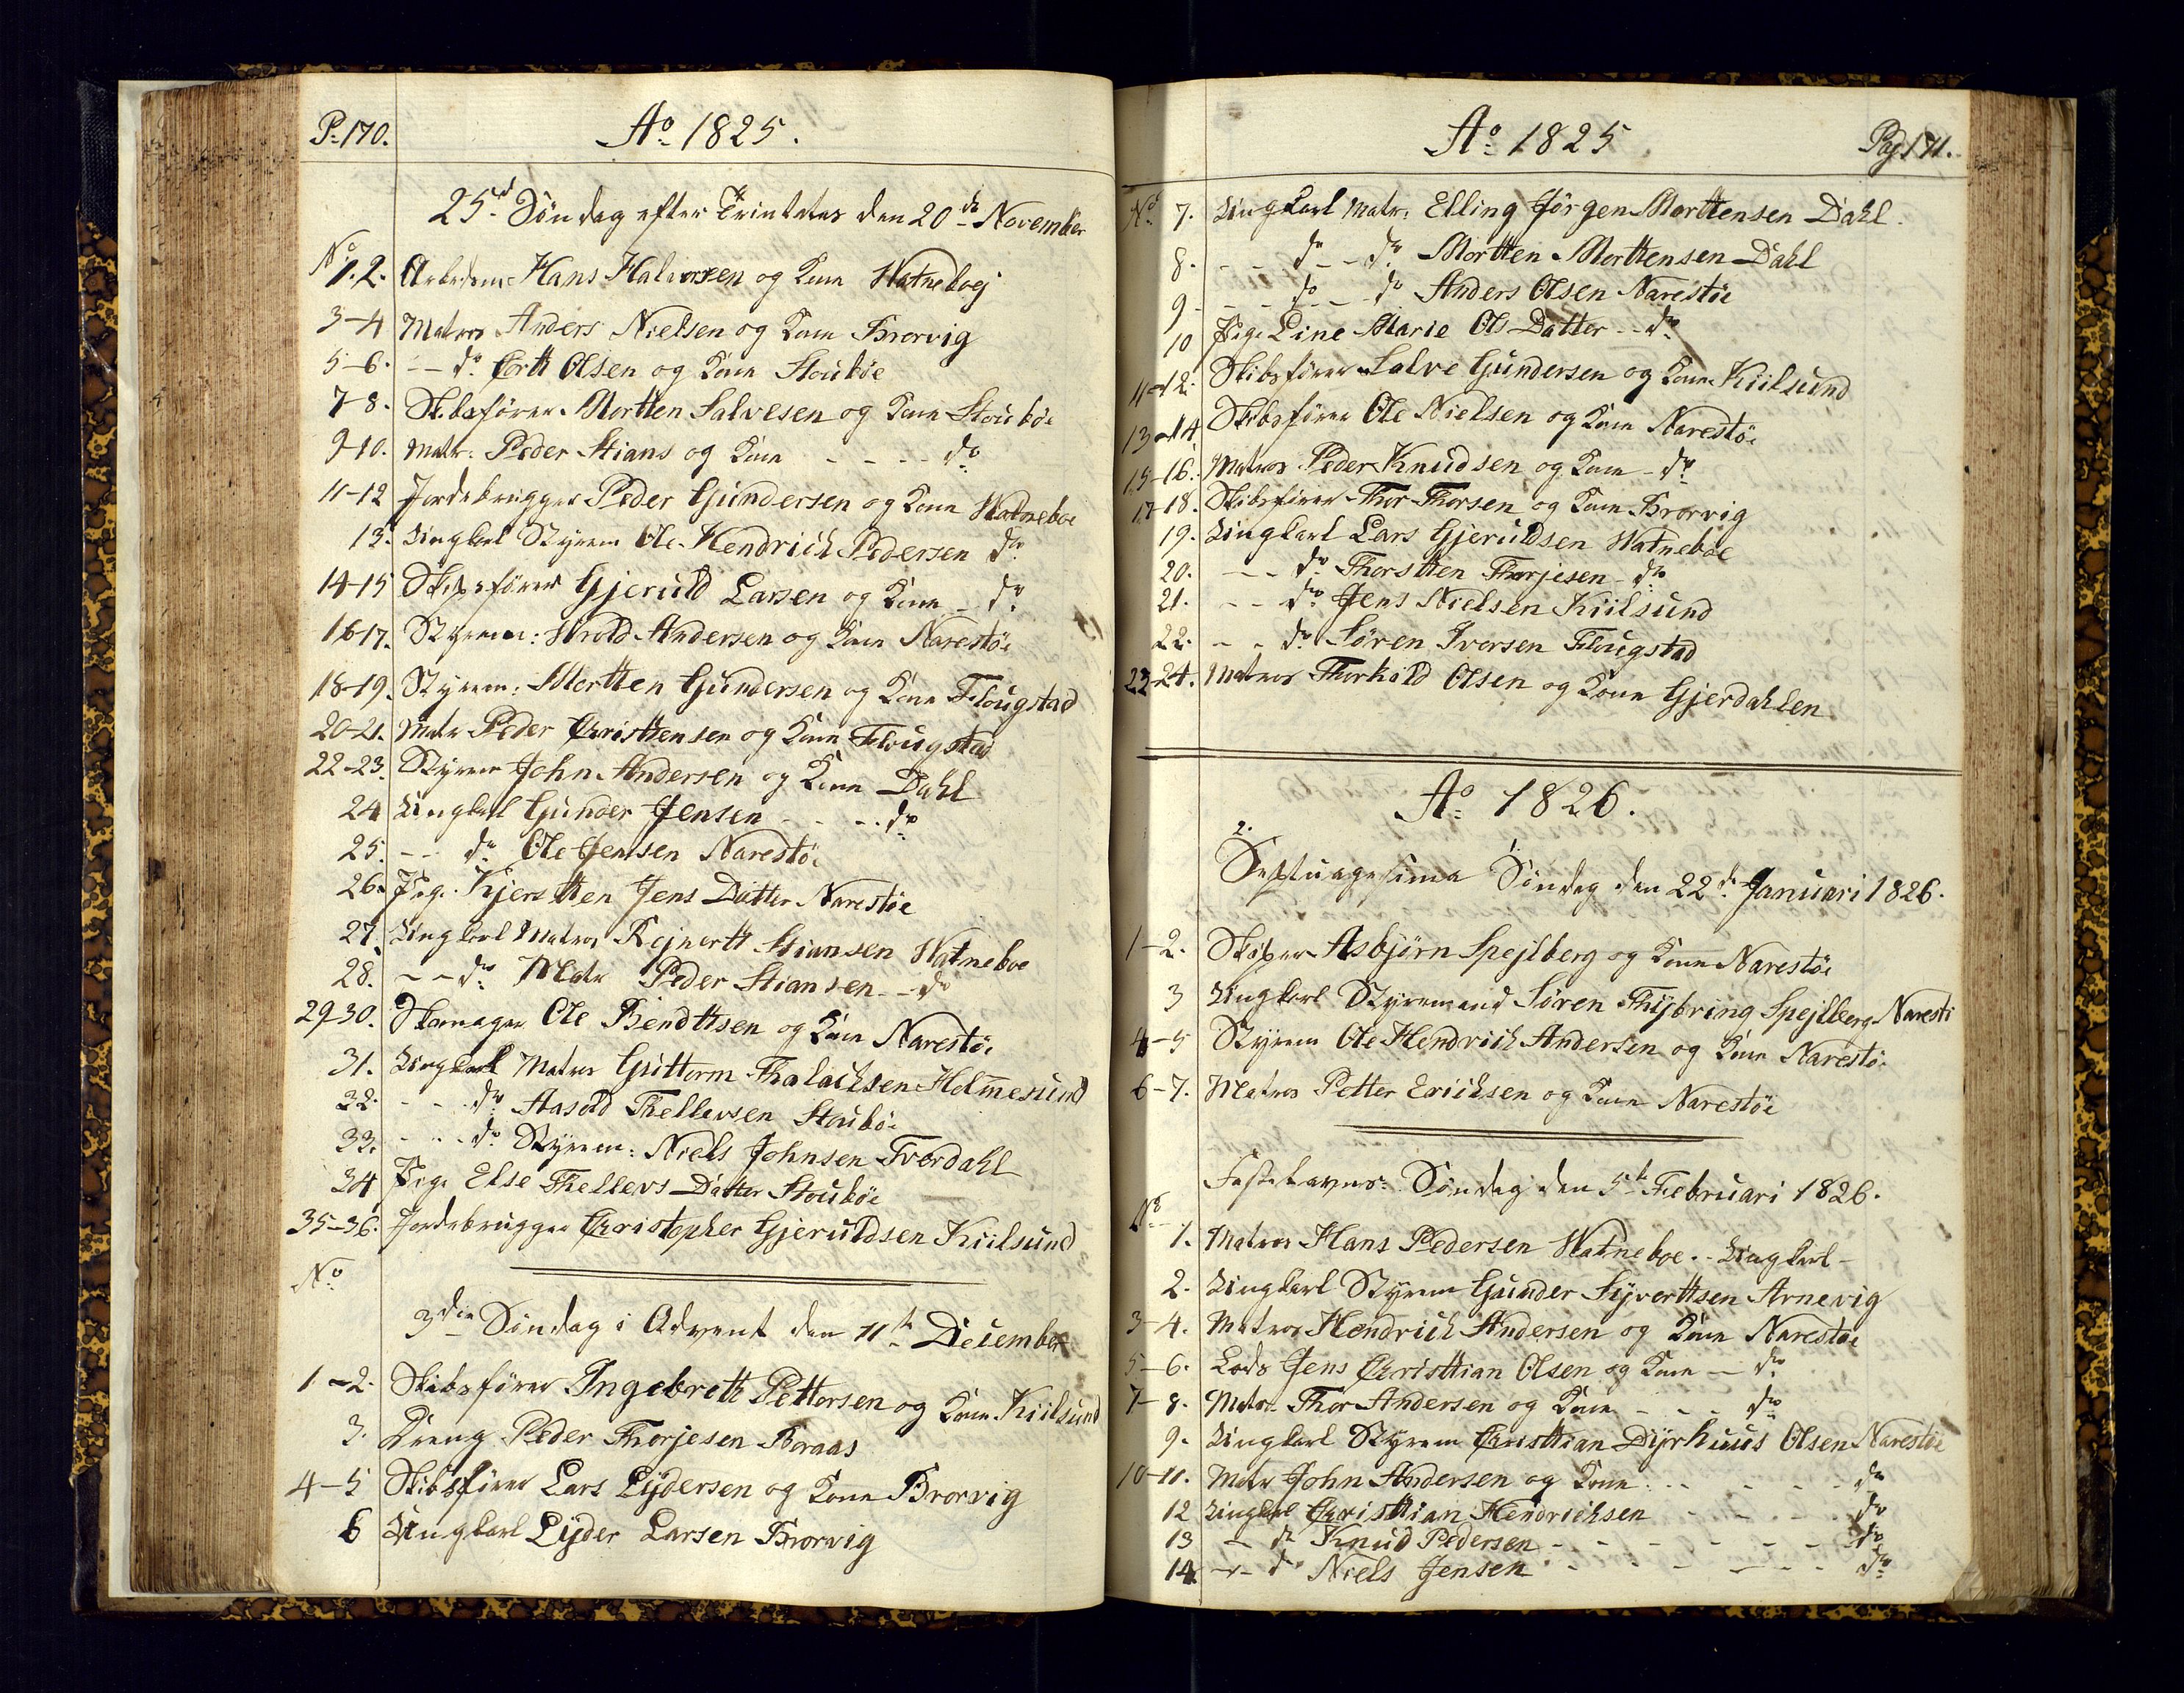 P. 170.
Ao 1825.
25d Søndag efter Trinitatis den 20de November
No 1. 2. Arbedsm: Hans Halvorsen og Kone Watneboej
3-4 Matros Anders Nielsen og Kone Brorvig
5-6. - - do Cort Olsen og Kone Stoubøe
7-8. Skibsfører Mortten Salvesen og Kone Stoubøe
9-10. Matr: Peder Stians og Kone - - - - do
11-12 Jordebrugger Peder Gundersen og Kone Watneboe
13. Ungkarl Styrem Ole Hendrich Pedersen do
14-15 Skipsfører Gjeruld Larsen og Kone - do
16-17. Styrem: Wrold Andersen og Kone Narestøe
18-19. Styrem: Mortten Gundersen og Kone Flougstad
20-21. Matr Peder Christtensen og Kone Flougstad
22-23. Styrem John Andersen og Kone Dahl
24 Ungkarl Gunder Jensen - - - - do
25. - - do Ole Jensen Narestøe
26. Pige Kjerstten Jens Datter Narestøe
27. Ungkarl Matros Rejnertt Stiansen Watneboe
28. - - do Matr Peder Stiansen - - do
29-30. Skomager Ole Bendttsen og Kone Narestøe
31. Ungkarl Matros Guttorm Thalachsen Holmesund
32. - - - do Aasold Thellevsen Stoubøe
33. - - - do Styrem: Niels Johnsen Tverdahl
34 Pige Else Thellevs Datter Stoubøe
35-36. Jordebrugger Christopher Gjeruldsen Kiilsund
No
3die Søndag i Advent den 11te December
1-2. Skibsfører Ingebrett Pettersen og Kone Kiilsund
3. Dreng Peder Thorjesen Boraas
4-5 Skibsfører Lars Lydersen og Kone Brorvig
6 Ungkarl Lyder Larsen Brorvig
Ao 1825
Pag 171.
No 7. Ungkarl Matr: Elling Jørgen Morttensen Dahl.
8. - - do - - do Mortten Morttensen Dahl
9 - - - do - - do Anders Olsen Narestøe
10 Pige Line Marie Ols Datter - - do
11-12. Skibsfører Salve Gundersen og Kone Kiilsund
13-14 Skibsfører Ole Nielsen og Kone Narestøe
15-16. Matros Peder Knudsen og Kone - do
17-18. Skibsfører Thor Thorsen og Kone Brorvig
19. Ungkarl Lars Gjeruldsen Watneboe
20. - - - do Thorstten Thorjesen - do
21. - - do Jens Nielsen Kiilsund
22. - - do Søren Iversen Flougstad
23-24. Matros Thorkild Olsen og Kone Gjerdahlen
Ao 1826.
2. Septuagesima 1. Søndag den 22de Januari 1826.
1-2. Skiper Asbjørn Spejlberg og Kone Narestøe
3 Ungkarl Styremand Søren Thybring Spejlberg Naresti
4-5 Styrem Ole Hendrich Andersen og Kone Narestøe
6-7. Matros Petter Erichsen og Kone Narestøe
Fastelavns Søndag den 5te Februari 1826.
No 1. Matros Hans Pedersen Watneboe. - Ungkarl -
2. Ungkarl Styrem Gunder Syverttsen Arnevig
3-4. Matros Hendrich Andersen og Kone Narestøe
5-6. Lods Jens Christtian Olsen og Kone - do
7-8. Matr. Thor Andersen og Kone - - - do
9. Ungkarl Styrem Christtian Dyrhuus Olsen Narestøe
10-11. Matr John Andersen og Kone - - - - - do
12 Ungkarl Christtian Hendrichsen - - - - - do
13 - do Knud Pedersen - - - - - - - do
14. - - do Niels Jensen - - - - - do